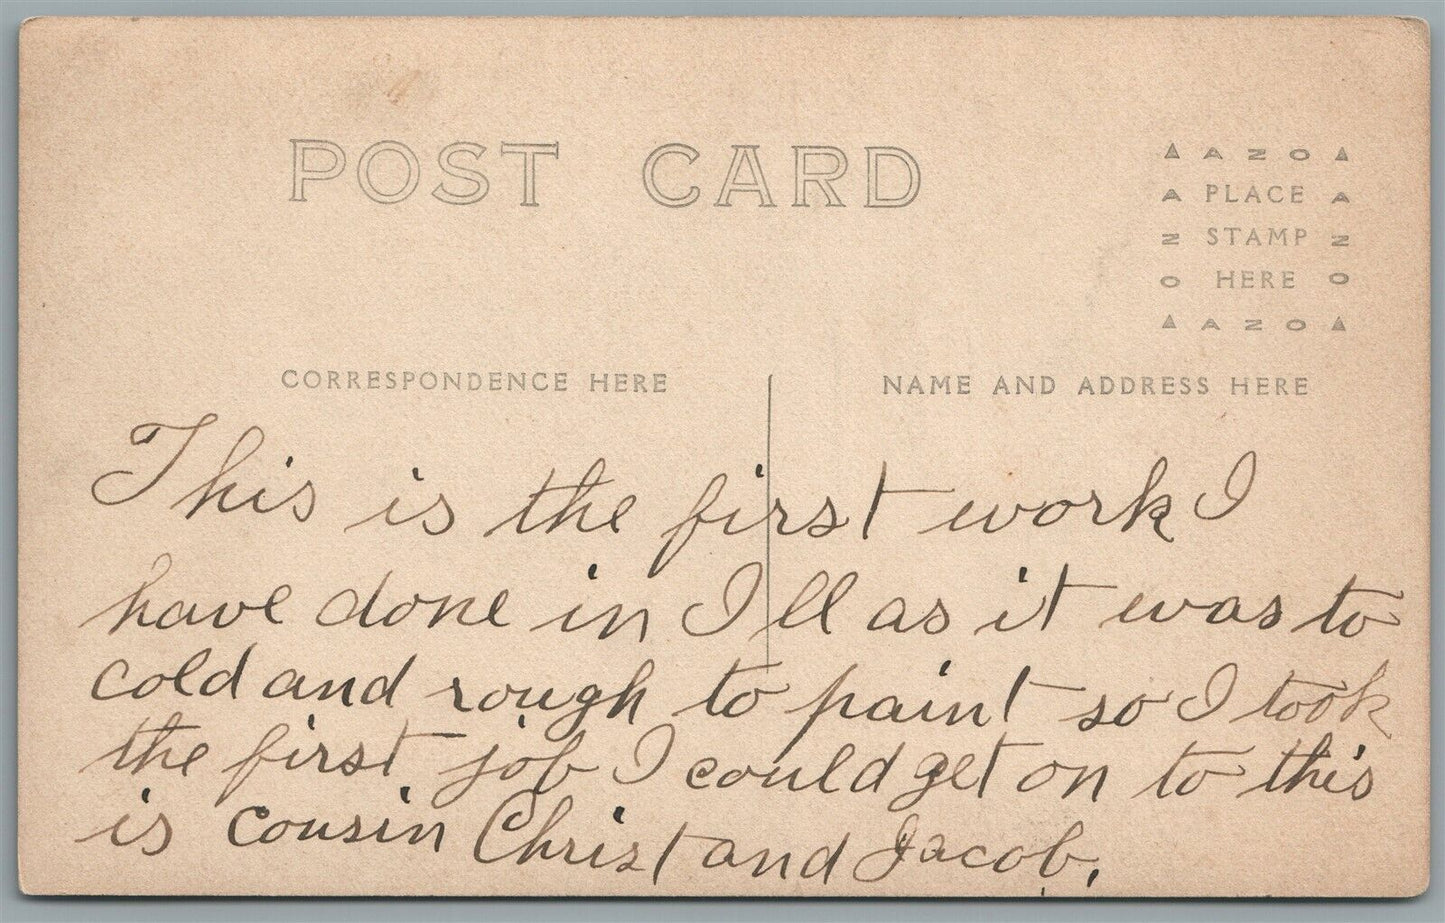 POST CARD
AZO
A PLACE A
N STAMP N
O HERE O
AZO
CORRESPONDENCE HERE
NAME AND ADDRESS HERE
This is the first work I
have done in Ill as it was to
cold and rough to paint so I took
the first job I could get on to this
is cousin Christ and Jacob.